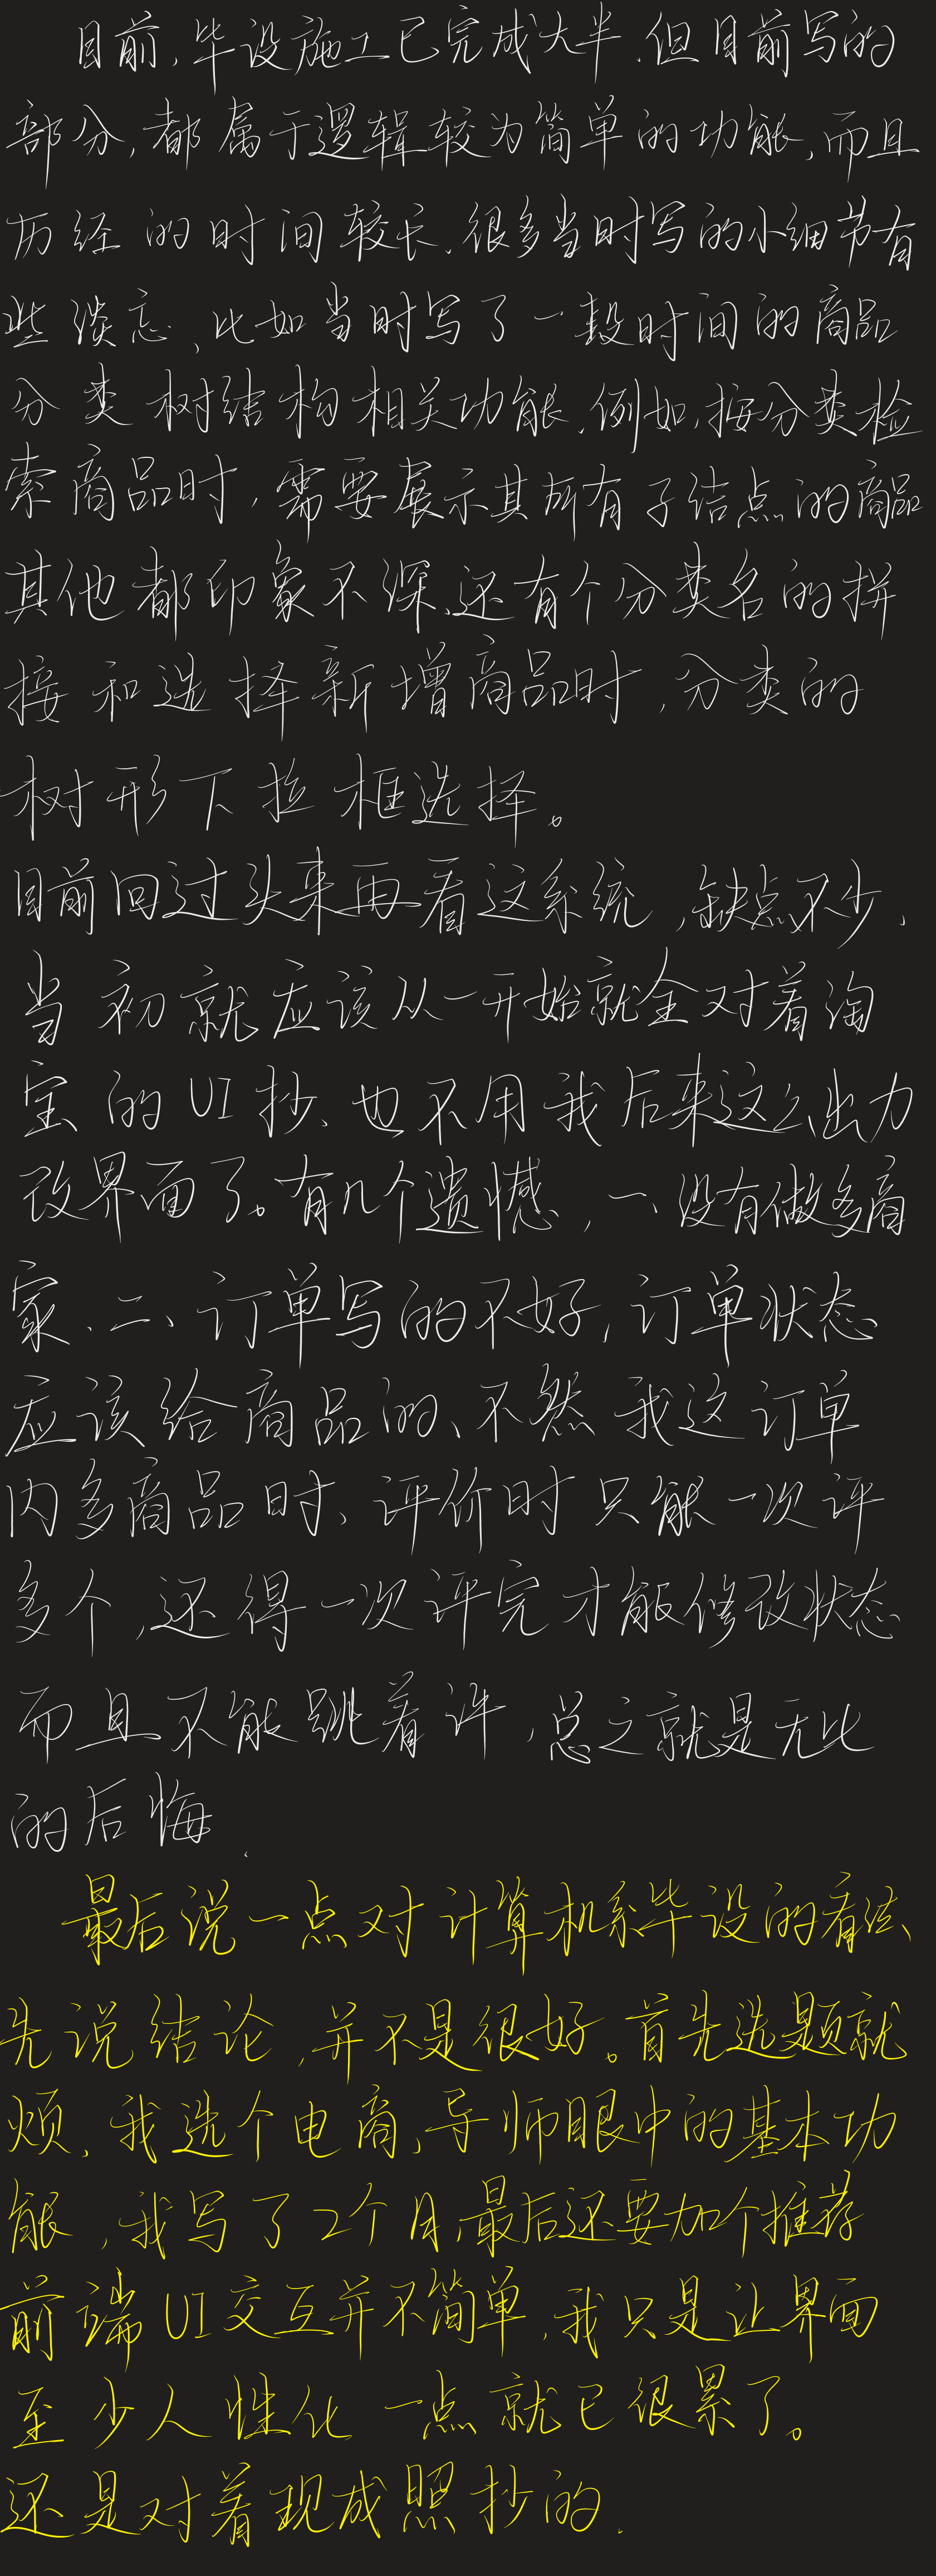 目前,毕设施工已完成大半.但目前写的
部分,都属于逻辑较为简单的功能,而且
历经的时间较长.很多当时写的小细节有
些淡忘、比如当时写了一段时间的商品
分类树结构相关功能.例如,按分类检
索商品时,需要展示其所有子结点的商品
其他都印象不深、还有个分类名的拼
接和选择新增商品时,分类的
树形下拉框选择。
目前回过头来再看这系统,缺点不少、
当初就应该从一开始就全对着淘
宝的UI抄、也不用我后来这么出力
改界面了。有几个遗憾,一、没有做多商
家、二、订单写的不好,订单状态
应该给商品的、不然我这订单
内多商品时、评价时只能一次评
多个,还得一次评完才能修改状态
而且不能跳着评,总之就是无比
的后悔.
最后说一点对计算机系毕设的看法、
先说结论,并不是很好。首先选题就
烦,我选个电商,导师眼中的基本功
能,我写了2个月,最后还要加个推荐
前端UI交互并不简单,我只是让界面
至少人性化一点就已很累了。
还是对着现成照抄的.